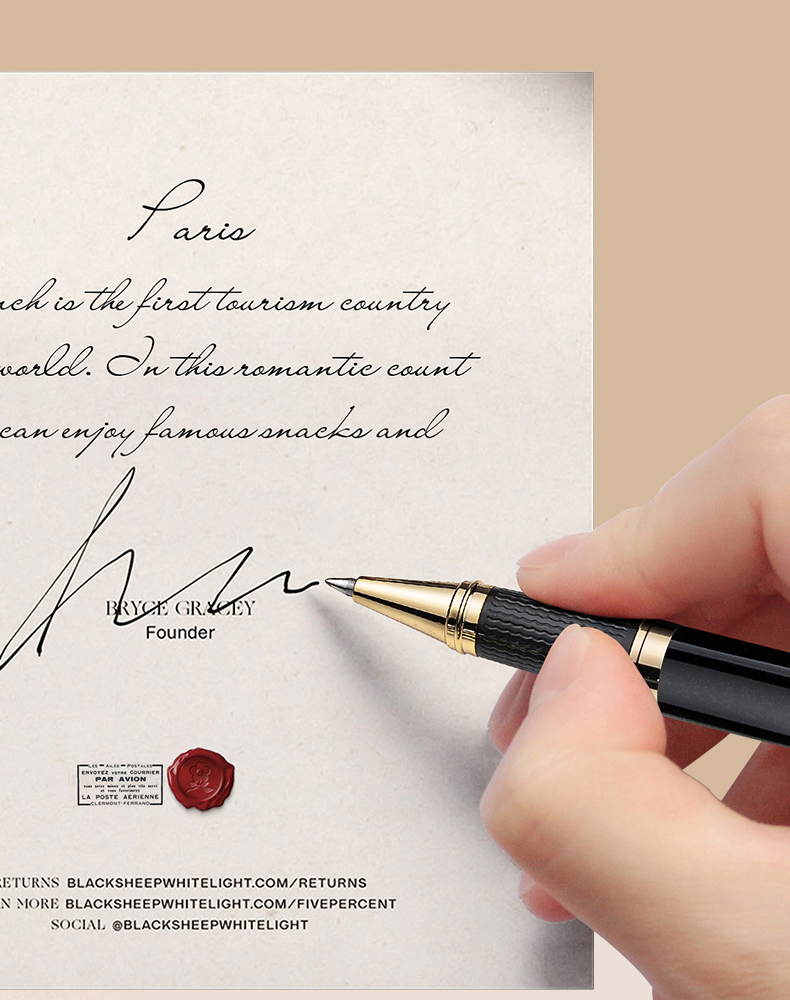 Paris
nch is the first tourism country
world. In this romantic count
can enjoy famous snacks and
BRYCE GRACEY
Founder
LES – AILES – POSTALES
ENVOYEZ VOTRE COURRIER
PAR AVION
LA POSTE AÉRIENNE
CLERMONT-FERRAND
RETURNS BLACKSHEEPWHITELIGHT.COM/RETURNS
N MORE BLACKSHEEPWHITELIGHT.COM/FIVEPERCENT
SOCIAL @BLACKSHEEPWHITELIGHT